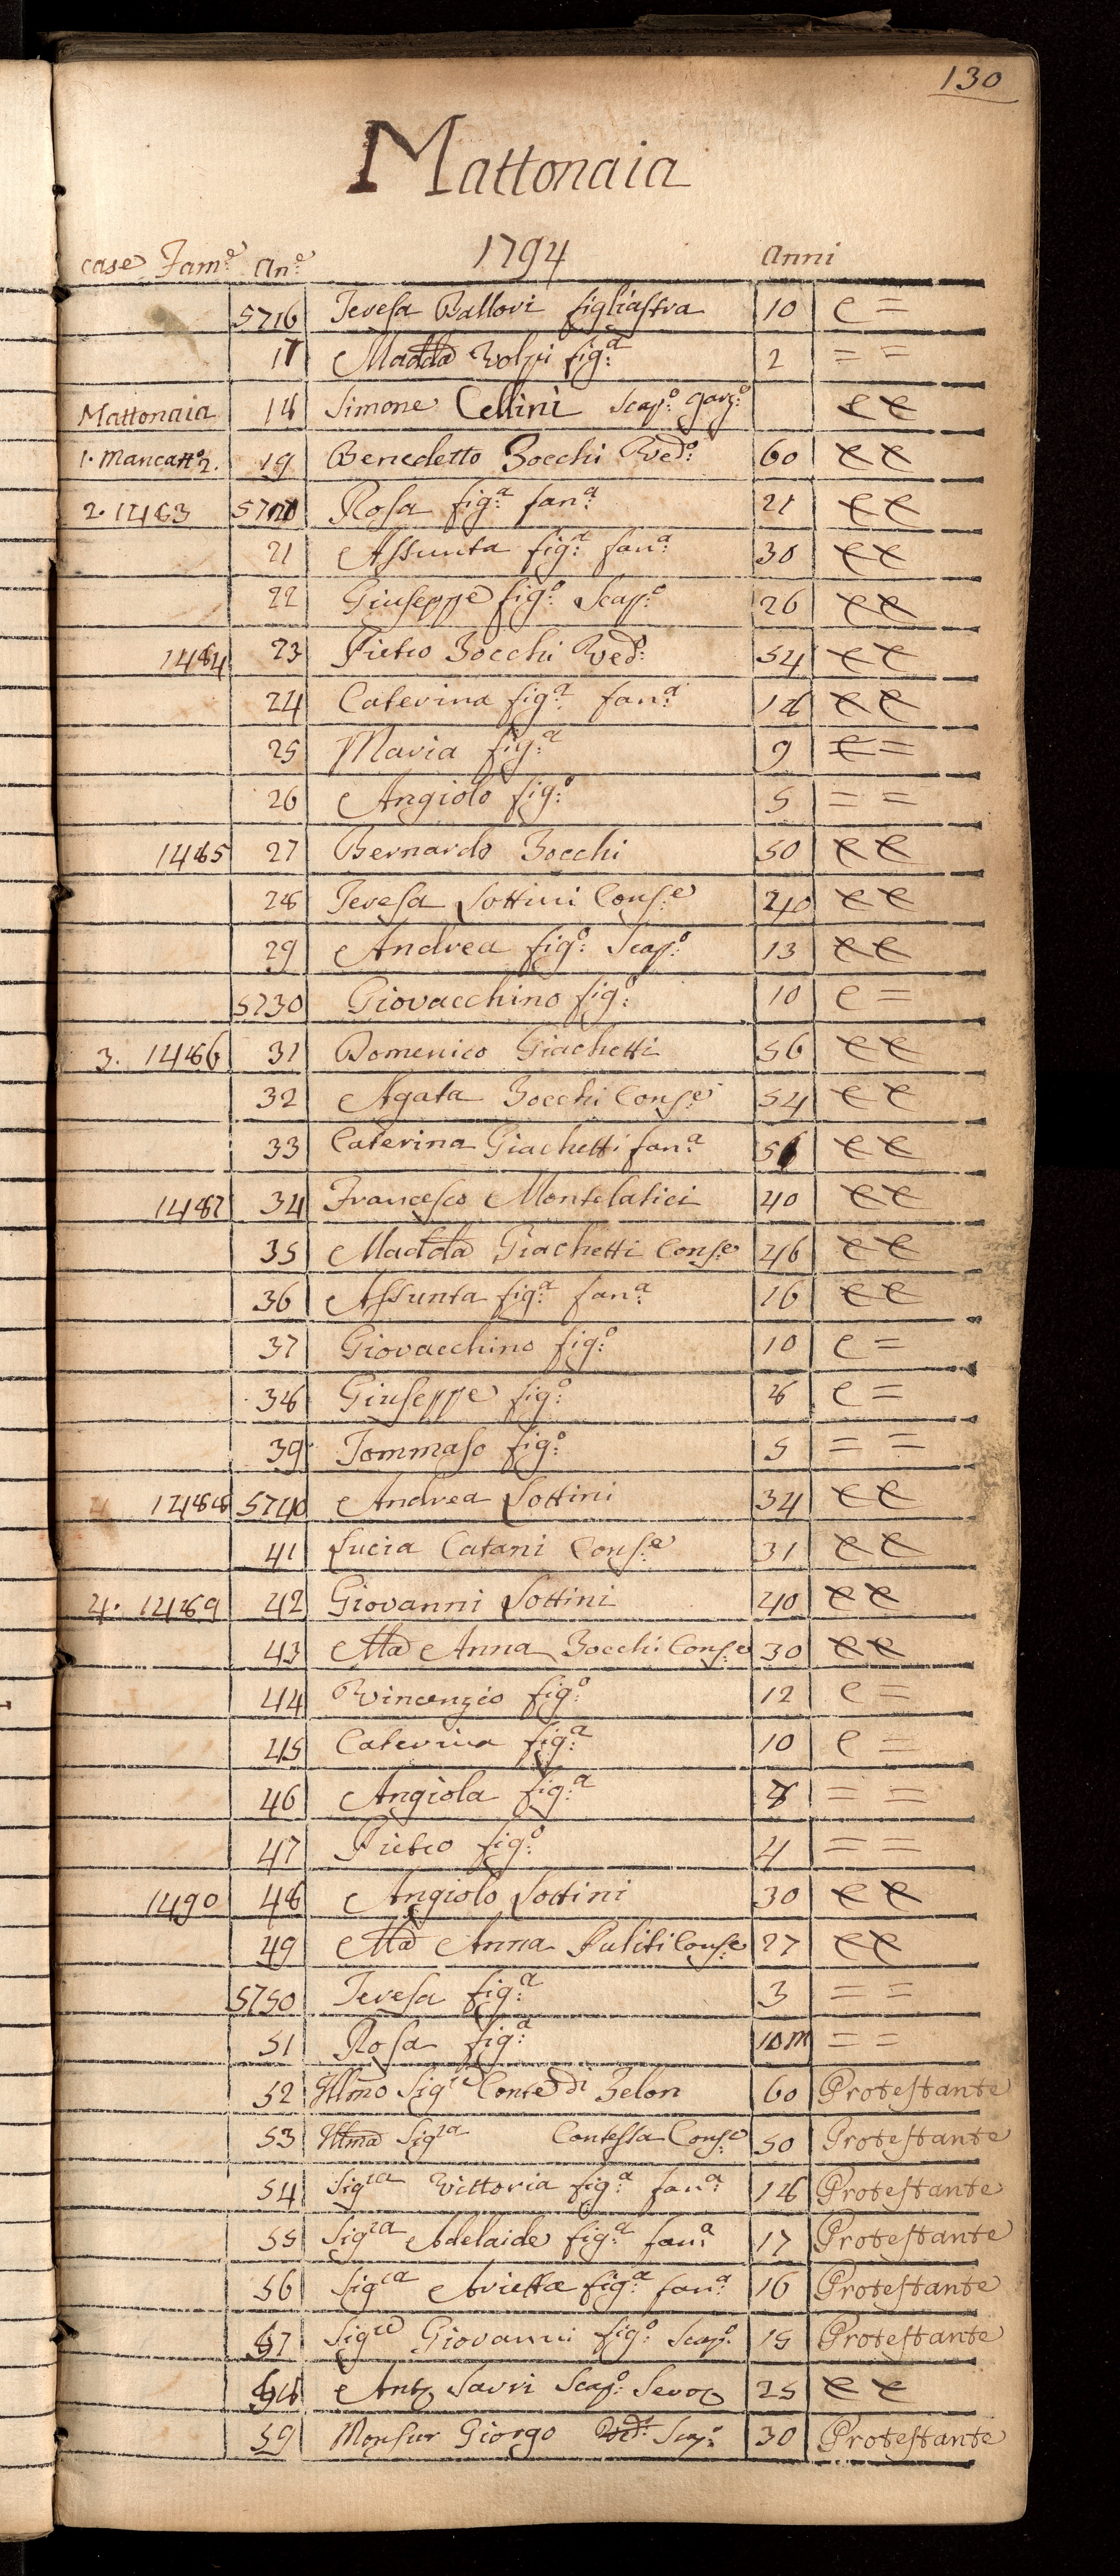 130
Mattonaia
case Fam:e An:e 1794 Anni
5716 Teresa Ballori figliastra 10 C =
17 Madda Volpi fig:a 2 = =
Mattonaia 18 Simone Cellini Scap:o garz:o C C
1. 19 Benedetto Bocchi Ved:o 60 C C
2. 1483 5720 Rosa fig:a fan:a 21 C C
21 Assunta fig:a fan:a 30 C C
22 Giuseppe fig:o Scap:o 26 C C
1484 23 Pietro Bocchi Ved:o 54 C C
24 Caterina fig:a fan:a 18 C C
25 Maria fig:a 9 C =
26 Angiolo fig:o 5 = =
1485 27 Bernardo Bocchi 50 C C
28 Teresa Sottini Cons:e 40 C C
29 Andrea fig:o Scap:o 13 C C
5730 Giovacchino fig:o 10 C =
3. 1486 31 Domenico Giachetti 56 C C
32 Agata Bocchi Cons:e 54 C C
33 Caterina Giachetti fan:a C C
1487 34 Francesco Montelatici 40 C C
35 Madda Giachetti Cons:e 46 C C
36 Assunta fig:a fan:a 16 C C
37 Giovacchino fig:o 10 C =
38 Giuseppe fig:o 8 C =
39 Tommaso fig:o 5 = =
1488 5740 Andrea Sottini 34 C C
41 Lucia Catani Cons:e 31 C C
4. 1489 42 Giovanni Sottini 40 C C
43 Ma Anna Bocchi Cons:e 30 C C
44 Vincenzio fig:o 12 C =
45 Caterina fig:a 10 C =
46 Angiola fig:a 8 = =
47 Pietro fig:o 4 = =
1490 48 Angiolo Sottini 30 C C
49 Ma Anna Puliti Cons:e 27 C C
5750 Teresa fig:a 3 = =
51 Rosa fig:a 10m = =
52 Illmo Sig:re Conte di Belon 60 Protestante
53 Illma Sig:ra Contessa Cons:e 50 Protestante
54 Sig:ra Vittoria fig:a fan:a 18 Protestante
55 Sig:ra Adelaide fig:a fan:a 17 Protestante
56 Sig:ra Arietta fig:a fan:a 16 Protestante
57 Sig:re Giovanni fig:o Scap:o 15 Protestante
58 Anto Savri Scap:o Servo 25 C C
59 Monsur Giorgo Ved:o Scap:o 30 Protestante